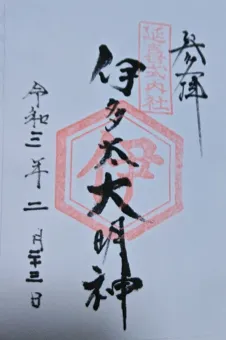 奉拝
延喜式内社
伊多太大明神
伊
令和三年二月二十三日